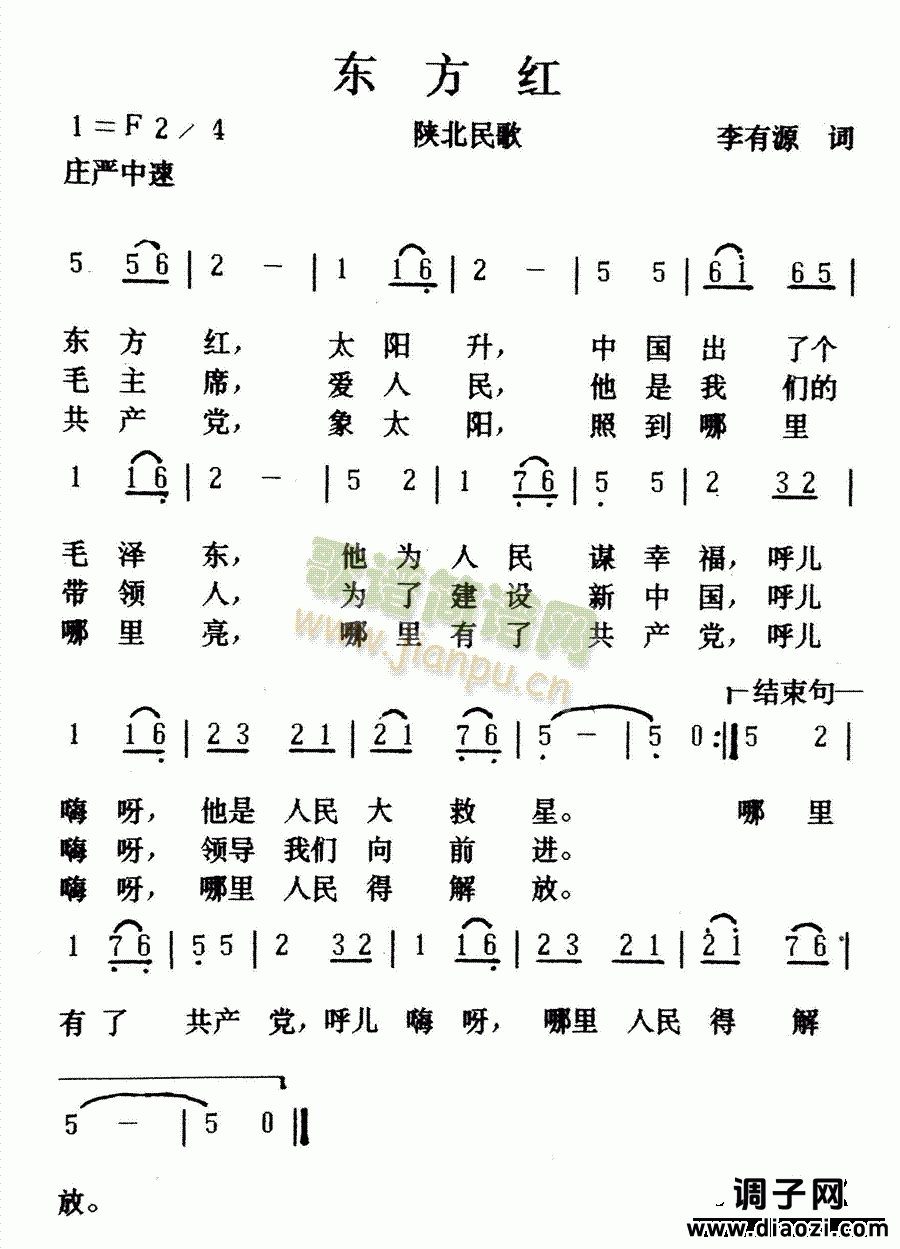 东方红
1=F 2/4 陕北民歌 李有源 词
庄严中速
5 56 | 2 - | 1 16 | 2 - | 5 5 | 6i 65 |
东方红，太阳升，中国出了个
毛主席，爱人民，他是我们的
共产党，象太阳，照到哪里
1 16 | 2 - | 5 2 | 1 76 | 5 5 | 2 32 |
毛泽东，他为人民谋幸福，呼儿
带领人，为了建设新中国，呼儿
哪里亮，哪里有了共产党，呼儿
歌谱简谱网
www.jianpu.cn
结束句
1 16 | 23 21 | 21 76 | 5 - | 5 0 :‖ 5 2 |
嗨呀，他是人民大救星。哪里
嗨呀，领导我们向前进。
嗨呀，哪里人民得解放。
1 76 | 55 | 2 32 | 1 16 | 23 21 | 2i 76 |
有了共产党，呼儿嗨呀，哪里人民得解
5 - | 5 0 ‖
放。
调子网
www.diaozi.com